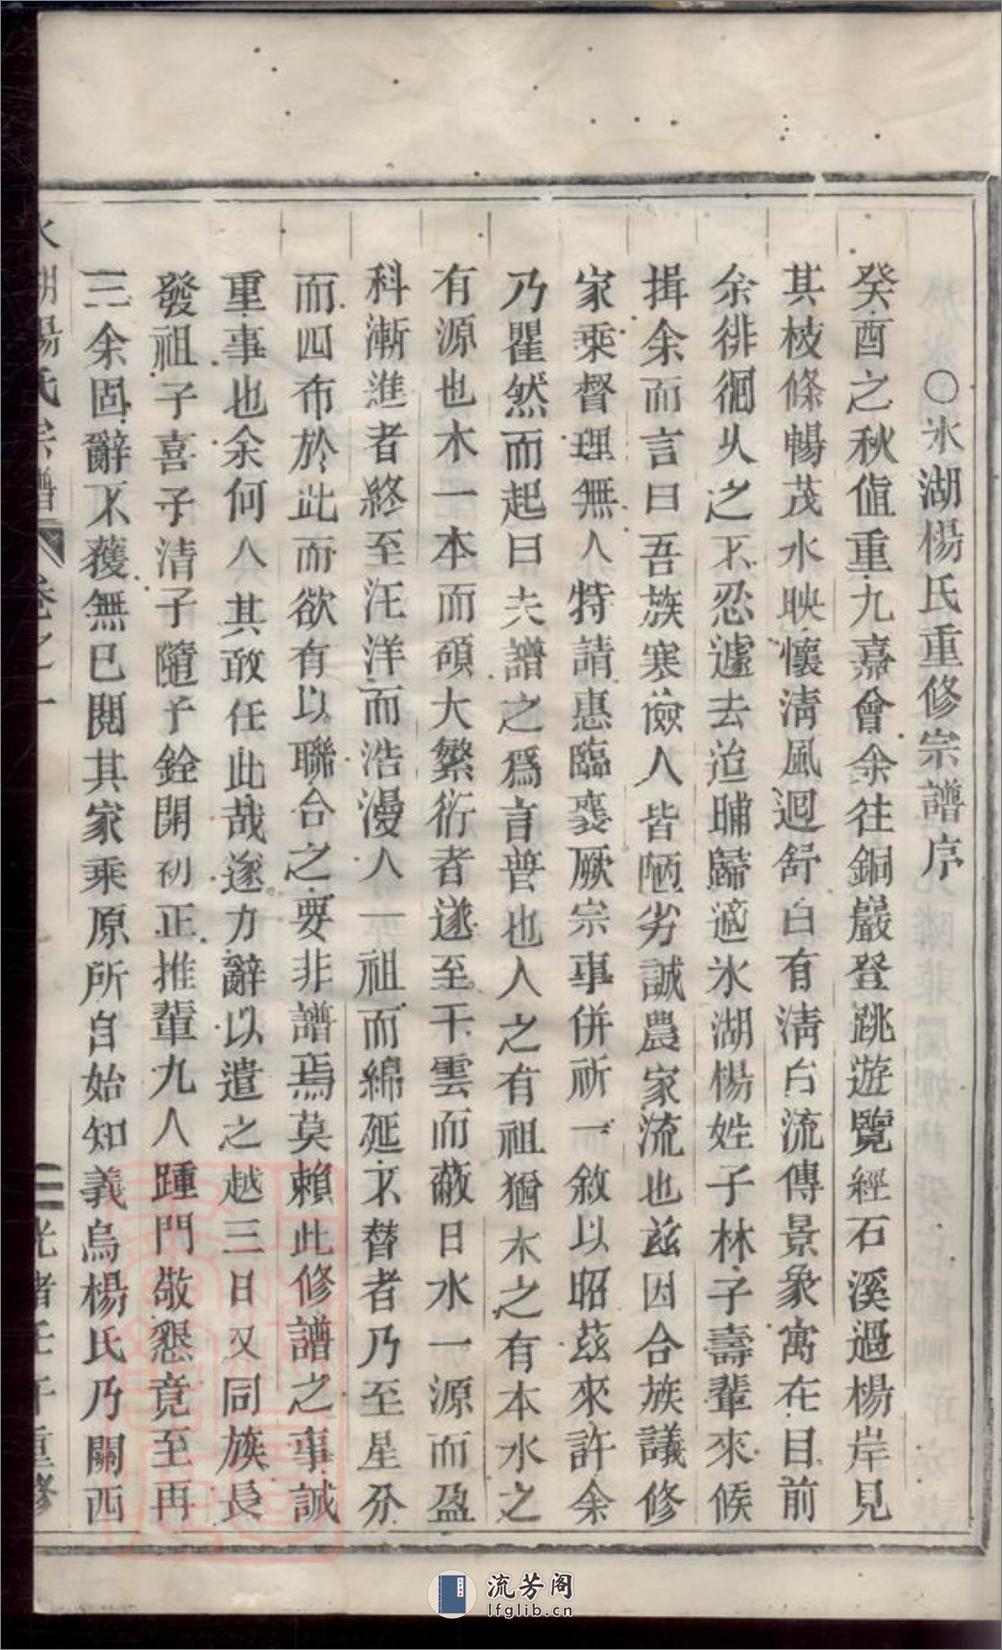 ○氷湖楊氏重修宗譜序
癸酉之秋值重九嘉會余往銅巖登跳遊覽經石溪過楊岸見
其枝條暢茂水映懷清風迴舒白有清台流傳景象寓在目前
余徘徊久之不忍遽去迨晡歸適氷湖楊姓子林子壽輩來候
揖余而言曰吾族寒儉人皆陋劣誠農家流也茲因合族議修
家乘督理無人特請惠臨襄厥宗事併祈一敘以昭茲來許余
乃瞿然而起曰夫譜之爲言普也人之有祖猶木之有本水之
有源也木一本而碩大繁衍者遂至干雲而蔽日水一源而盈
科漸進者終至汪洋而浩漫人一祖而綿延不替者乃至星分
而四布於此而欲有以聯合之要非譜焉莫賴此修譜之事誠
重事也余何人其敢任此哉遂力辭以遣之越三日又同族長
發祖子喜子清子隨子銓開初正推輩九人踵門敬懇竟至再
三余固辭不獲無已閱其家乘原所自始知義烏楊氏乃關西
氷湖楊氏宗譜 卷之一 二 光緒壬午重修
流芳阁
lfglib.cn